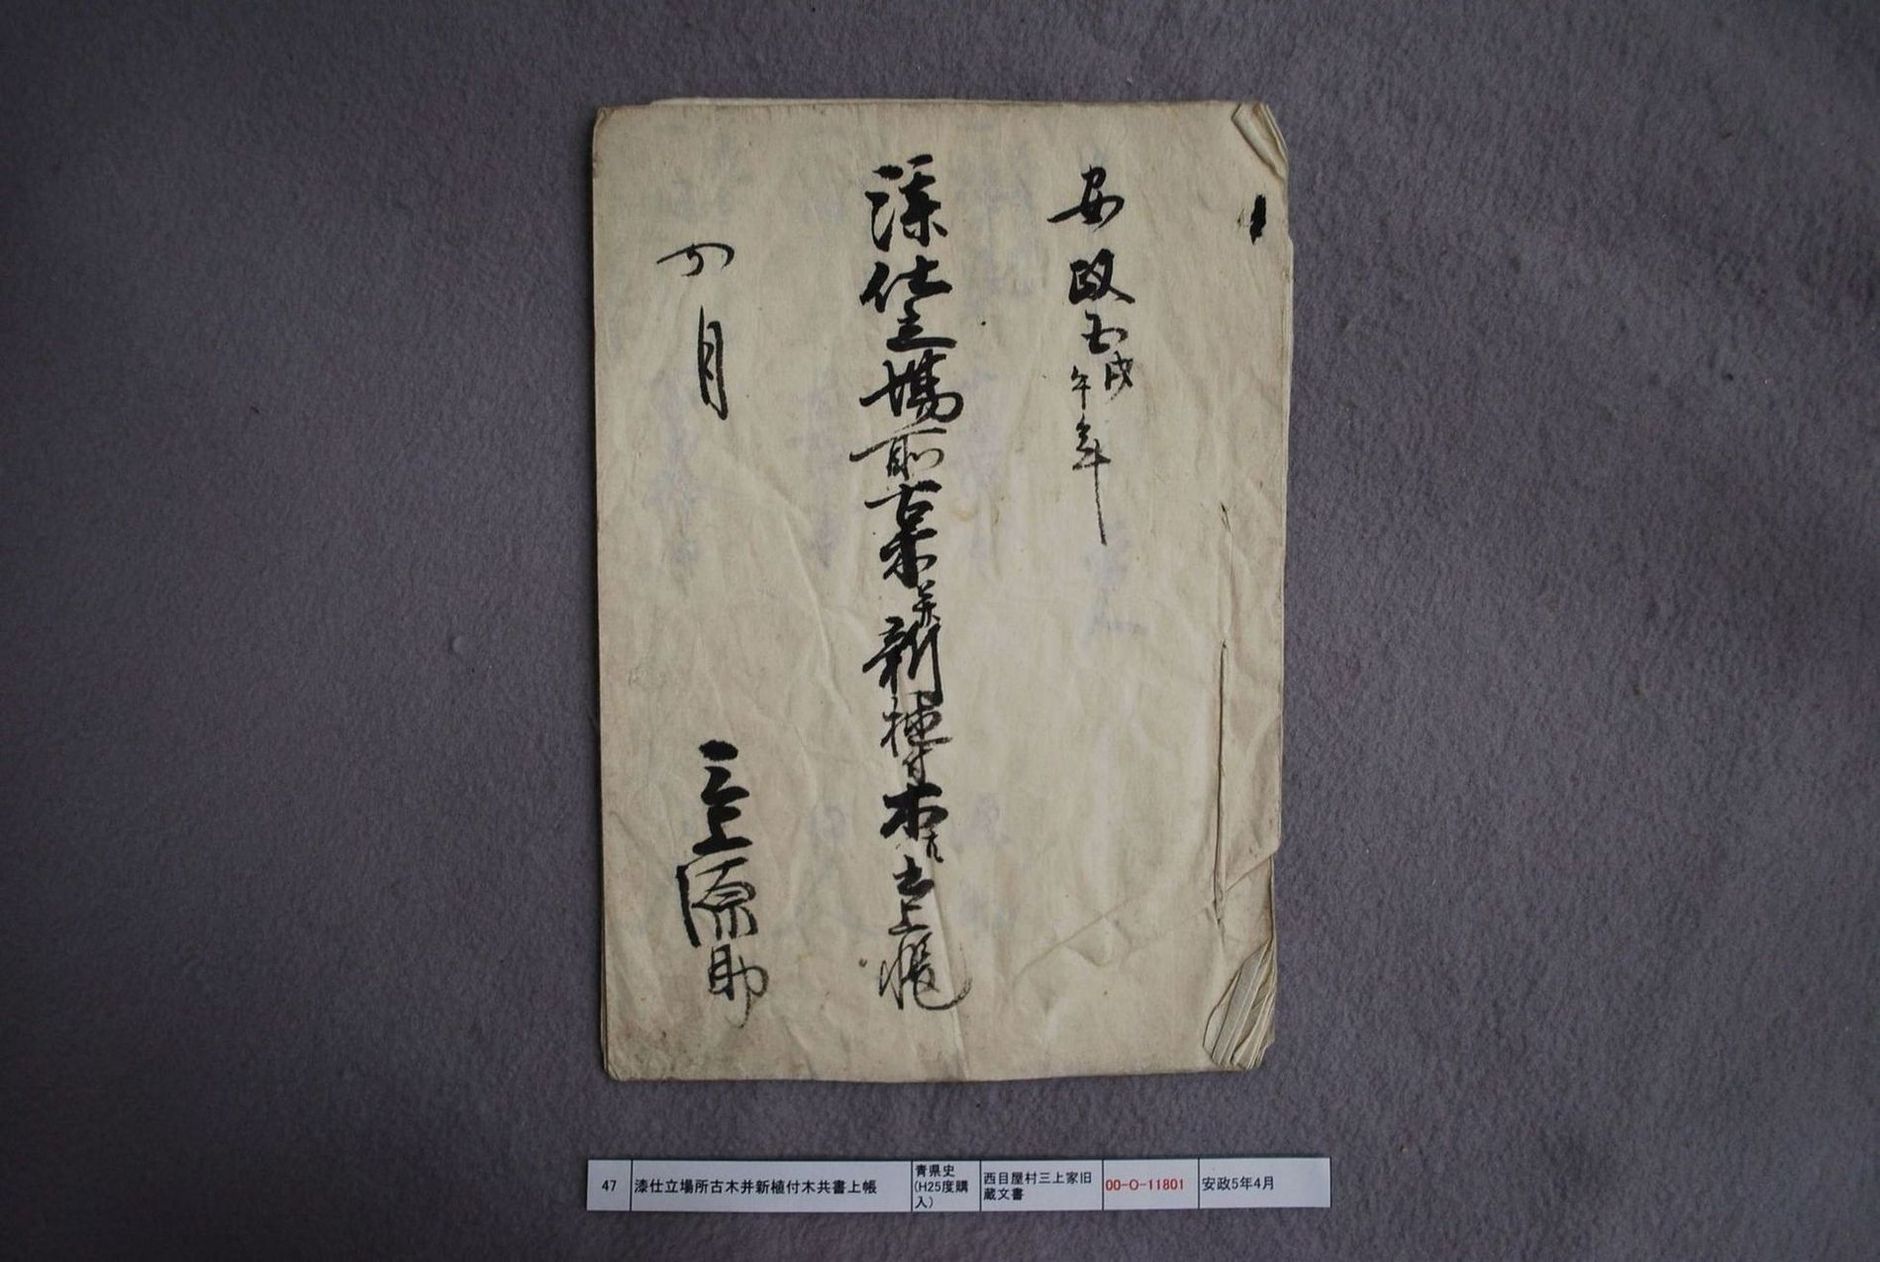 安政五戊午年
漆仕立場所古木并新植付木共書上帳
四月
三上源助
47 漆仕立場所古木并新植付木共書上帳 青県史(H25度購入) 西目屋村三上家旧蔵文書 00-O-11801 安政5年4月